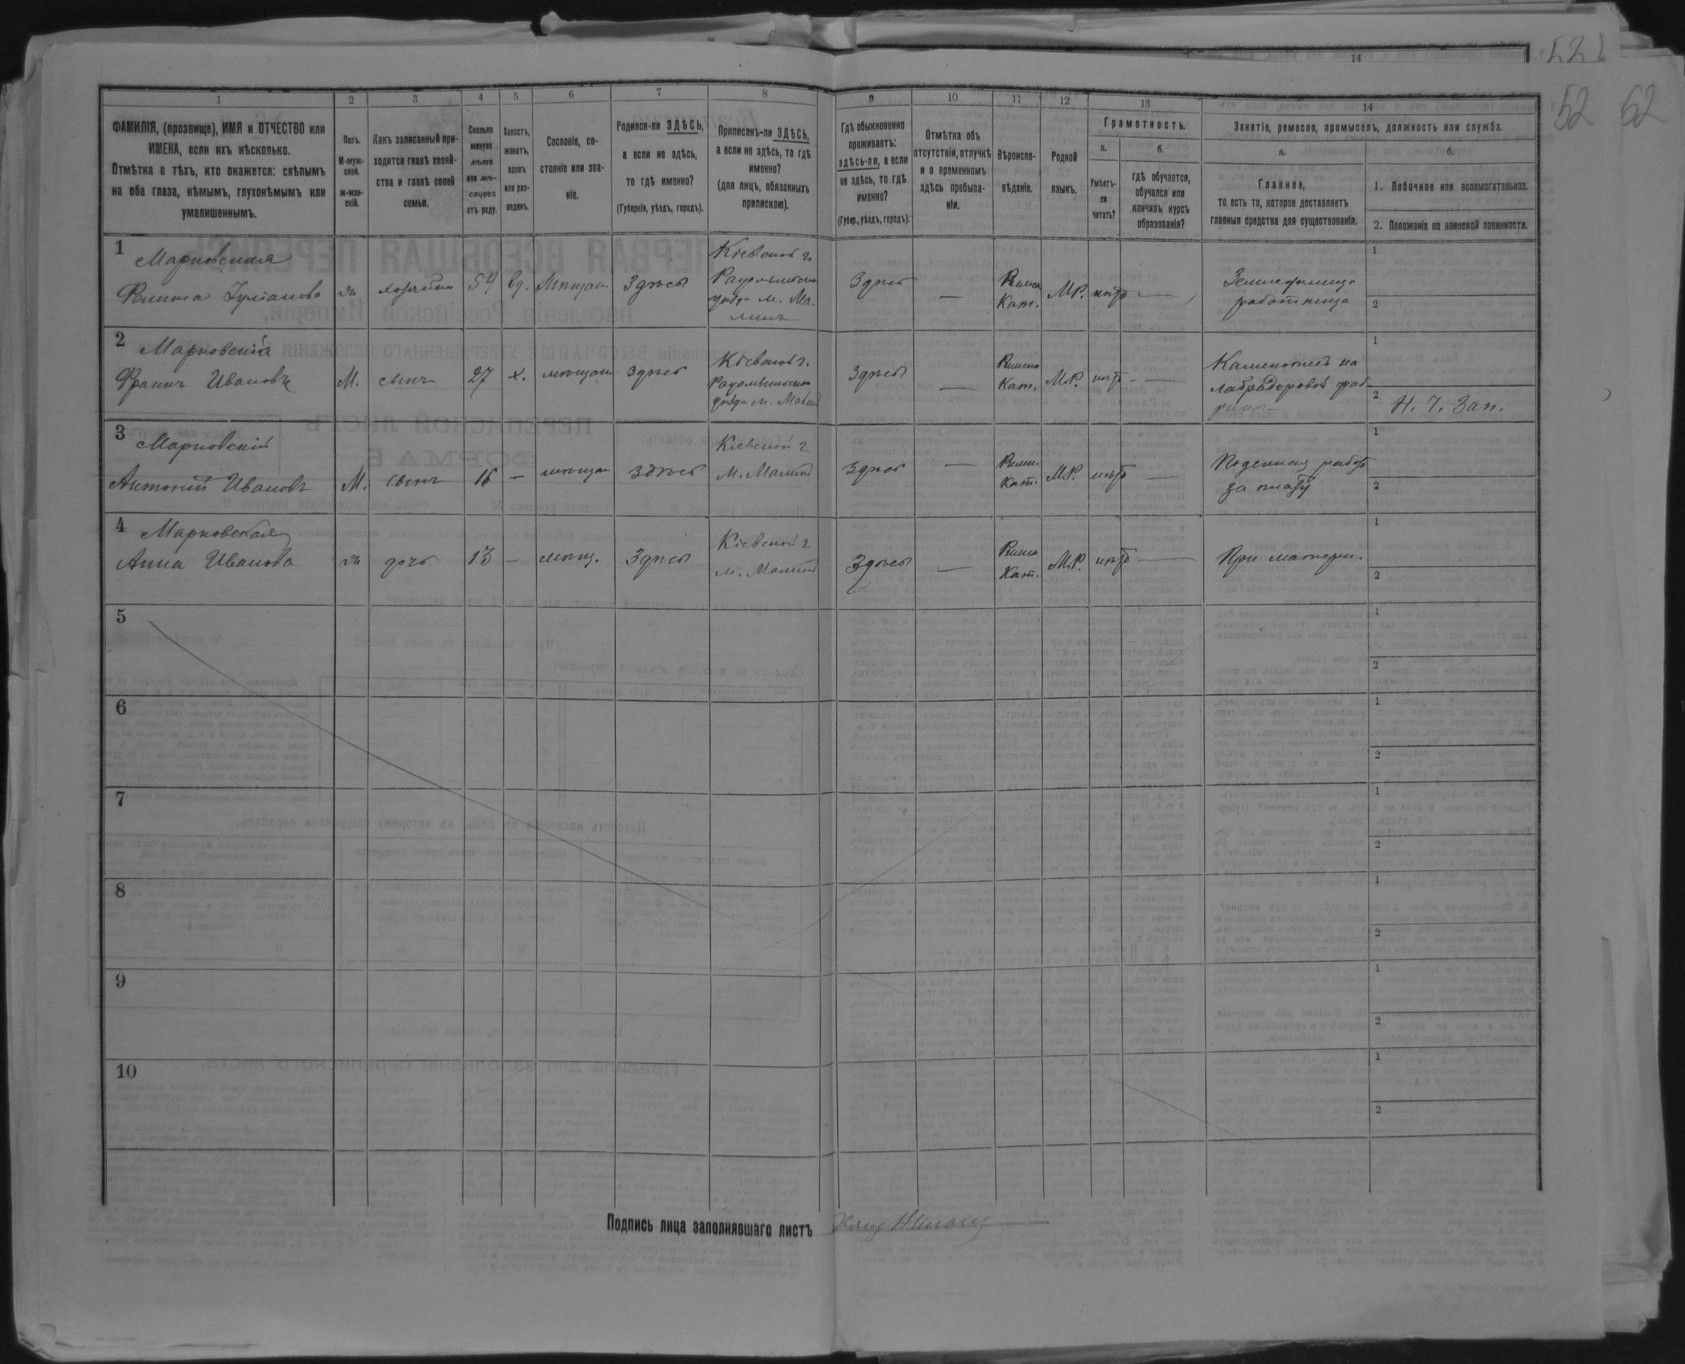 14
52
62
1
2
3
4
5
6
7
8
9
10
11
12
13
14
ФАМИЛІЯ, (прозвище), ИМЯ и ОТЧЕСТВО или
ИМЕНА, если ихъ нѣсколько.
Отмѣтка о тѣхъ, кто окажется: слѣпымъ
на оба глаза, нѣмымъ, глухонѣмымъ или
умалишеннымъ.
Полъ.
М-муж-
ской.
ж-жен-
скій.
Какъ записанный при-
ходится главѣ хозяй-
ства и главѣ своей
семьи.
Сколько
минуло
лѣтъ
или мѣ-
сяцевъ
отъ роду.
Холостъ,
женатъ,
вдовъ
или раз-
веденъ.
Сословіе, со-
стояніе или зва-
ніе.
Родился-ли ЗДѢСЬ,
а если не здѣсь,
то гдѣ именно?
(Губернія, уѣздъ, городъ).
Приписанъ-ли ЗДѢСЬ,
а если не здѣсь, то гдѣ
именно?
(для лицъ, обязанныхъ
припискою).
Гдѣ обыкновенно
проживаетъ:
здѣсь-ли, а если
не здѣсь, то гдѣ
именно?
(Губер., уѣздъ, городъ).
Отмѣтка объ
отсутствіи, отлучкѣ
и о временномъ
здѣсь пребыва-
ніи.
Вѣроиспо-
вѣданіе.
Родной
языкъ.
Грамотность.
а.
Умѣетъ-
ли
читать?
б.
гдѣ обучается,
обучался или
кончилъ курсъ
образованія?
Занятіе, ремесло, промыселъ, должность или служба.
а.
Главное,
то есть то, которое доставляетъ
главныя средства для существованія.
б.
1. Побочное или вспомогательное.
2. Положеніе по воинской повинности.
1
Марковская
ж хозяйка 54 вд. мѣщан. Здѣсь
Кіевской г.
уѣзда м. Ма-
линъ
Здѣсь — Римск. Кат. М.Р. нѣтъ —
работница
1
2
2
Марковскій
Францъ Ивановъ М. сынъ 27 х. мѣщан. здѣсь
Кіевской г.
уѣзда м. Малинъ
Здѣсь — Римск. Кат. М.Р. нѣтъ —
Каменотесъ на
лабрадоровой фаб-
рикѣ
1
2 Н. Ч. Зап.
3
Марковскій
Антоній Ивановъ М. сынъ 16 — мѣщан. здѣсь
Кіевской г
м. Малинъ
Здѣсь — Римск. Кат. М.Р. нѣтъ —
за плату
1
2
4
Марковская
Анна Иванова ж дочь 13 — мѣщ. Здѣсь
Кіевской г
м. Малинъ
Здѣсь — Римск. Кат. М.Р. нѣтъ —
При матери.
1
2
5
1
2
6
1
2
7
1
2
8
1
2
9
1
2
10
1
2
Подпись лица заполнявшаго листъ